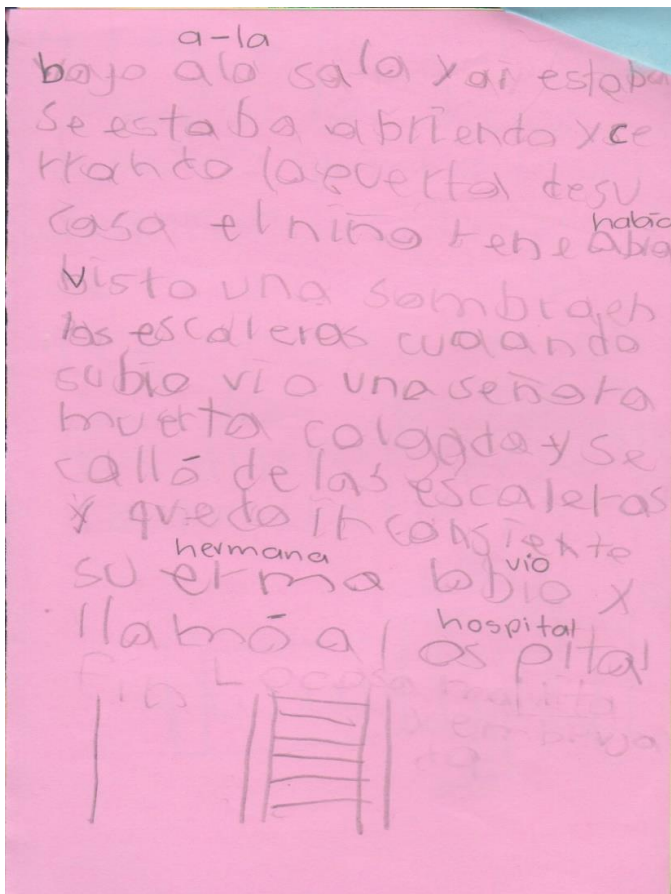 a-la
bajo ala sala y ai estaban
se estaba abriendo y ce
rrando la puerta desu
casa el niño rene abia
había
visto una sombra en
las escaleras cuando
subio vio una señora
muerta colgada y se
calló de las escaleras
y quedo inconsiente
hermana vio
su erma lobio y
llamó al ospital
hospital
fin